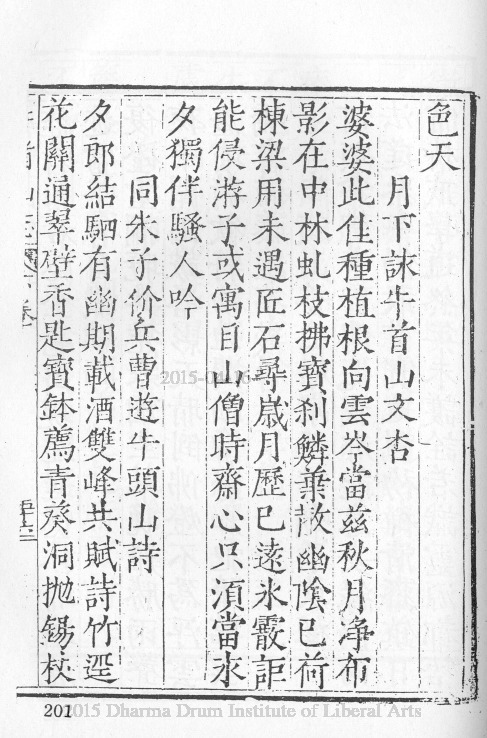 色天
月下詠牛首山文杏
婆婆此佳種植根向雲岑當兹秋月净布
影在中林虬枝拂寶刹鱗葉散幽陰已荷
棟梁用未遇匠石尋歲月歷已遠氷霰詎
能侵游子或寓目山僧時齋心只湏當永
夕獨伴騷人吟
同朱子价兵曹遊牛頭山詩
夕郎結駟有幽期載酒雙峰共賦詩竹逕
花關通翠壁香匙寶鉢薦青葵洞抛錫杖
2015-04-16
201
2015 Dharma Drum Institute of Liberal Arts